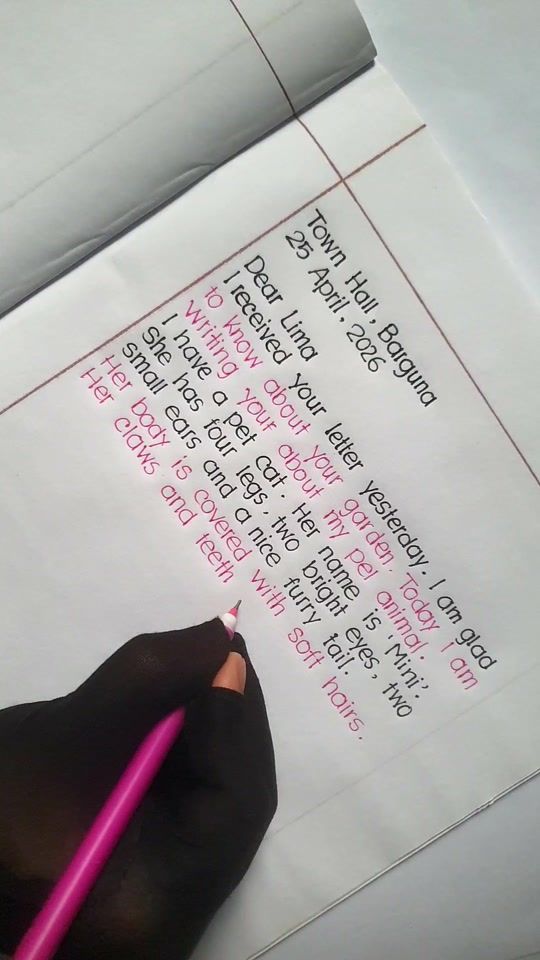 Town Hall, Barguna
25 April, 2026
Dear Lima
I received your letter yesterday. I am glad
to know about your garden. Today I am
writing your about my pet animal.
I have a pet cat. Her name is 'Mini'.
She has four legs, two bright eyes, two
small ears and a nice furry tail.
Her body is covered with soft hairs.
Her claws and teeth